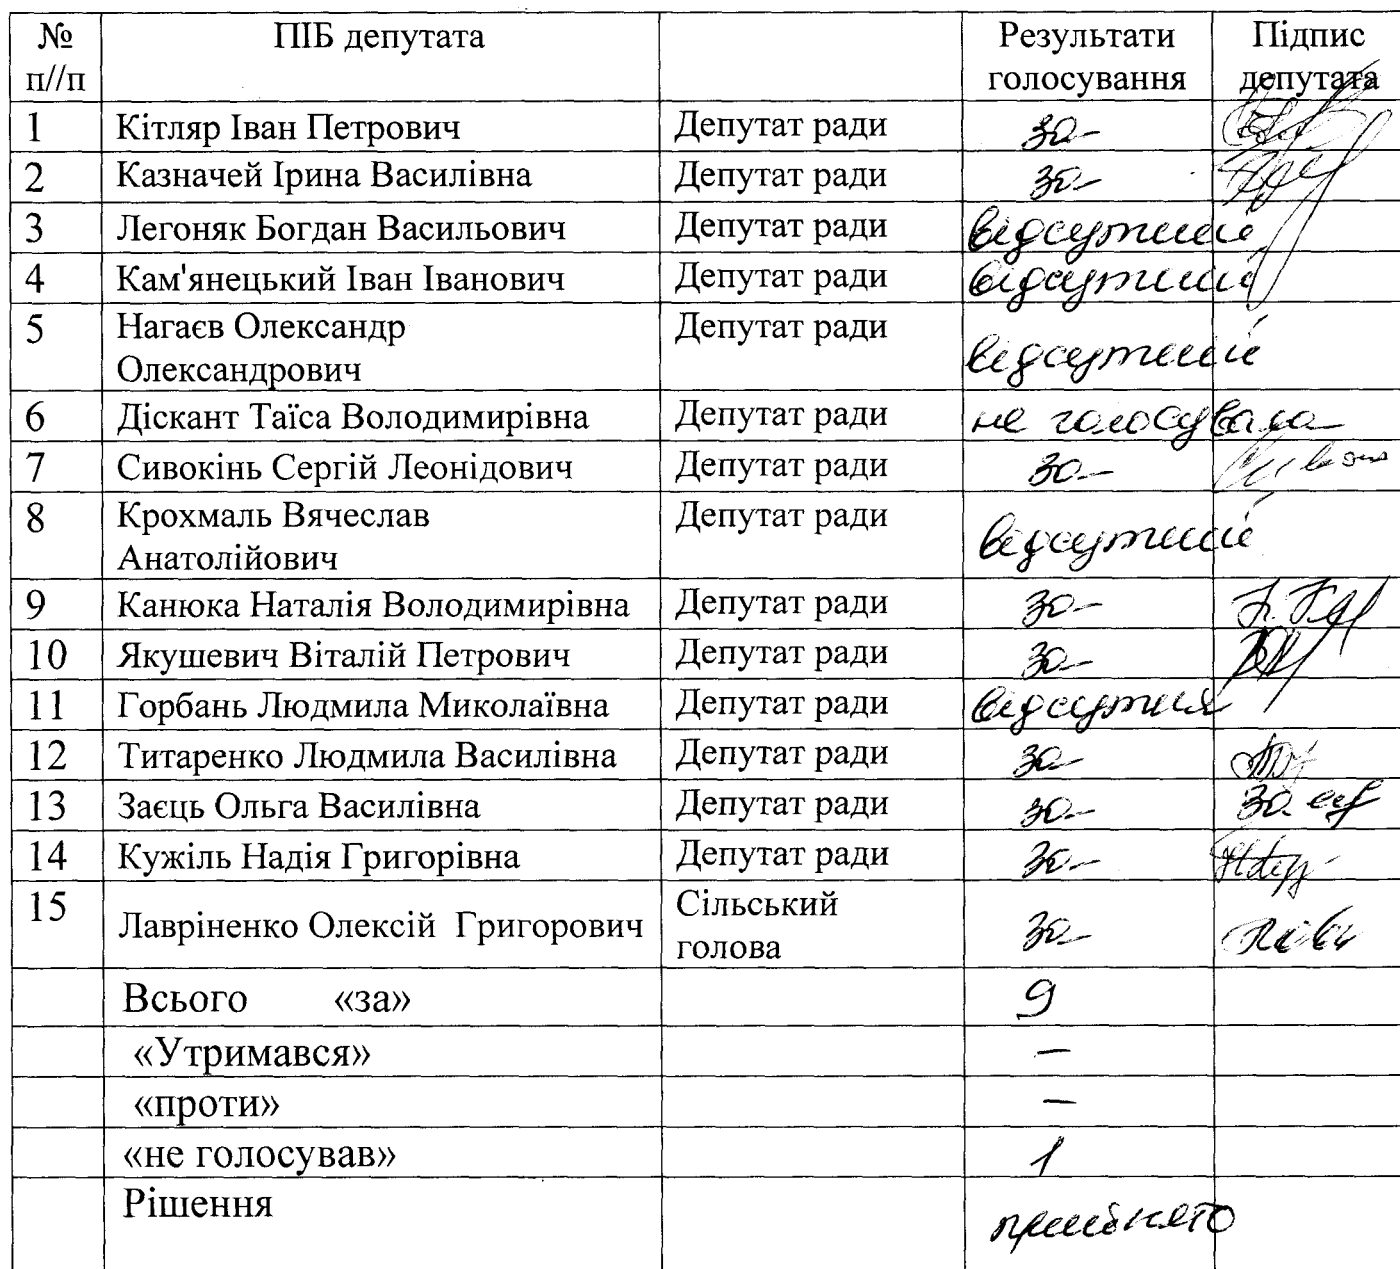 № ПІБ депутата Результати Підпис
п//п голосування депутата
1 Кітляр Іван Петрович Депутат ради за
2 Казначей Ірина Василівна Депутат ради за
3 Легоняк Богдан Васильович Депутат ради відсутній
4 Кам'янецький Іван Іванович Депутат ради відсутній
5 Нагаєв Олександр Депутат ради
Олександрович відсутній
6 Діскант Таїса Володимирівна Депутат ради не голосувала
7 Сивокінь Сергій Леонідович Депутат ради за
8 Крохмаль Вячеслав Депутат ради
Анатолійович відсутній
9 Канюка Наталія Володимирівна Депутат ради за
10 Якушевич Віталій Петрович Депутат ради за
11 Горбань Людмила Миколаївна Депутат ради відсутня
12 Титаренко Людмила Василівна Депутат ради за
13 Заєць Ольга Василівна Депутат ради за
14 Кужіль Надія Григорівна Депутат ради за
15 Лавріненко Олексій Григорович Сільський за
голова
Всього «за» 9
«Утримався» –
«проти» –
«не голосував» 1
Рішення прийнято